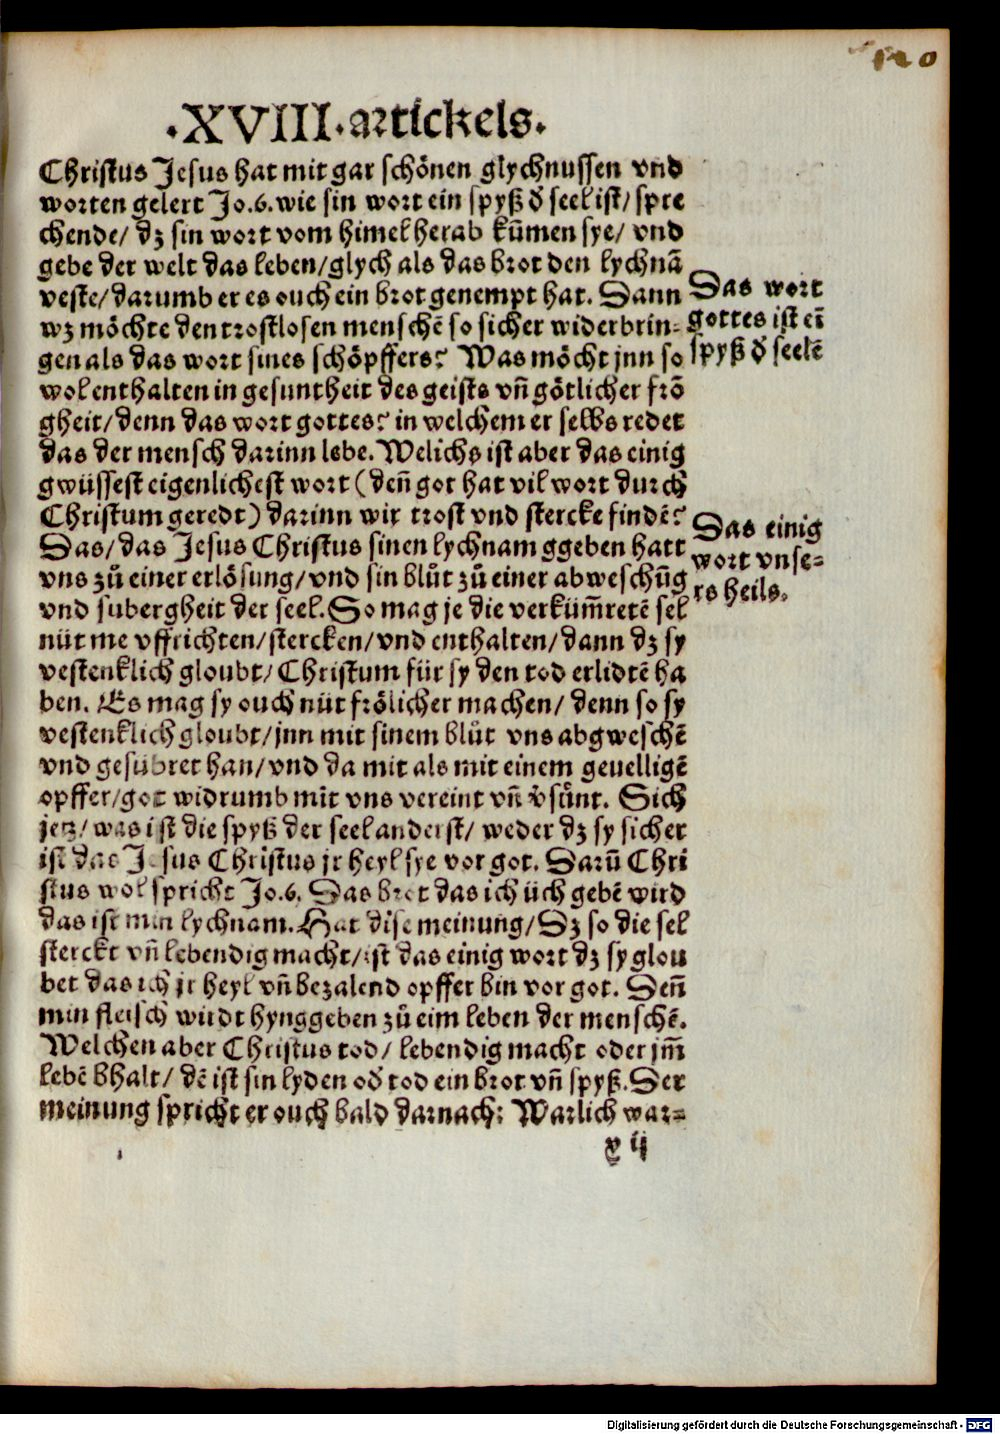 120
.XVIII.artickels.
Christus Jesus hat mit gar schönen glychnussen vnd
worten gelert Jo.6.wie sin wort ein spyß d̕ seel ist/ spre
chende/ dz sin wort vom himel herab kūmen sye/ vnd
gebe der welt das leben/glych als das brot den lychnā
veste/darumb er es ouch ein brot genempt hat. Dann
wz möchte den trostlosen menschē so sicher widerbrin-
gen als das wort sines schöpffers? Was möcht jnn so
wol enthalten in gesuntheit des geists vn̄ götlicher frō
gheit/denn das wort gottes? in welchem er selbs redet
das der mensch darinn lebe. Welichs ist aber das einig
gwüssest eigenlichest wort (den̄ got hat vil wort durch
Christum geredt) darinn wir trost vnd stercke findē?
Das/das Jesus Christus sinen lychnam ggeben hatt
vns zů einer erlösung/vnd sin blůt zů einer abweschūg
vnd subergheit der seel.So mag je die verküm̄retē sel
nüt me vffrichten/stercken/vnd enthalten/dann dz sy
vestenklich gloubt/Christum für sy den tod erlidtē ha
ben. Es mag sy ouch nüt frölicher machen/ denn so sy
vestenklich gloubt/jnn mit sinem blůt vns abgweschē
vnd gesübret han/vnd da mit als mit einem geuelligē
opffer/got widrumb mit vns vereint vn̄ v̕sünt. Sich
jetz/was ist die spyß der seel anderst/ weder dz sy sicher
ist das Jesus Christus jr heyl sye vor got. Darū Chri
stus wol spricht Jo.6. Das brot das ich üch gebē wird
das ist min lychnam. Hat dise meinung/Dz so die sel
sterckt vn̄ lebendig macht/ist das einig wort dz sy glou
bet das ich jr heyl vn̄ bezalend opffer bin vor got. Den̄
min fleisch wirdt hynggeben zů eim leben der menschē.
Welchen aber Christus tod/ lebendig macht oder jm̄
lebē bhalt/ dē ist sin lyden od̕ tod ein brot vn̄ spyß.Der
meinung spricht er ouch bald darnach: Warlich war-
x ij
Das wort
gottes ist eī
spyß d̕ seelē
Das einig
wort vnse-
rs heils.
Digitalisierung gefördert durch die Deutsche Forschungsgemeinschaft - DFG